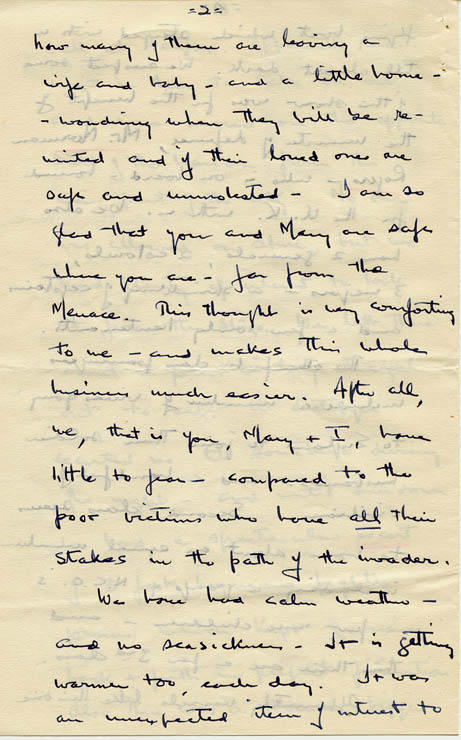 -2-
how many of them are leaving a
wife and baby - and a little home -
- wondering when they will be re-
united and if their loved ones are
safe and unmolested - I am so
glad that you and Mary are safe
where you are - far from the
Menace. This thought is very comforting
to me - and makes this whole
business much easier. After all,
we, that is you, Mary + I, have
little to fear - compared to the
poor victims who have all their
stakes in the path of the invader.
We have had calm weather -
and no seasickness - It is getting
warmer too, each day. It was
an unexpected item of interest to